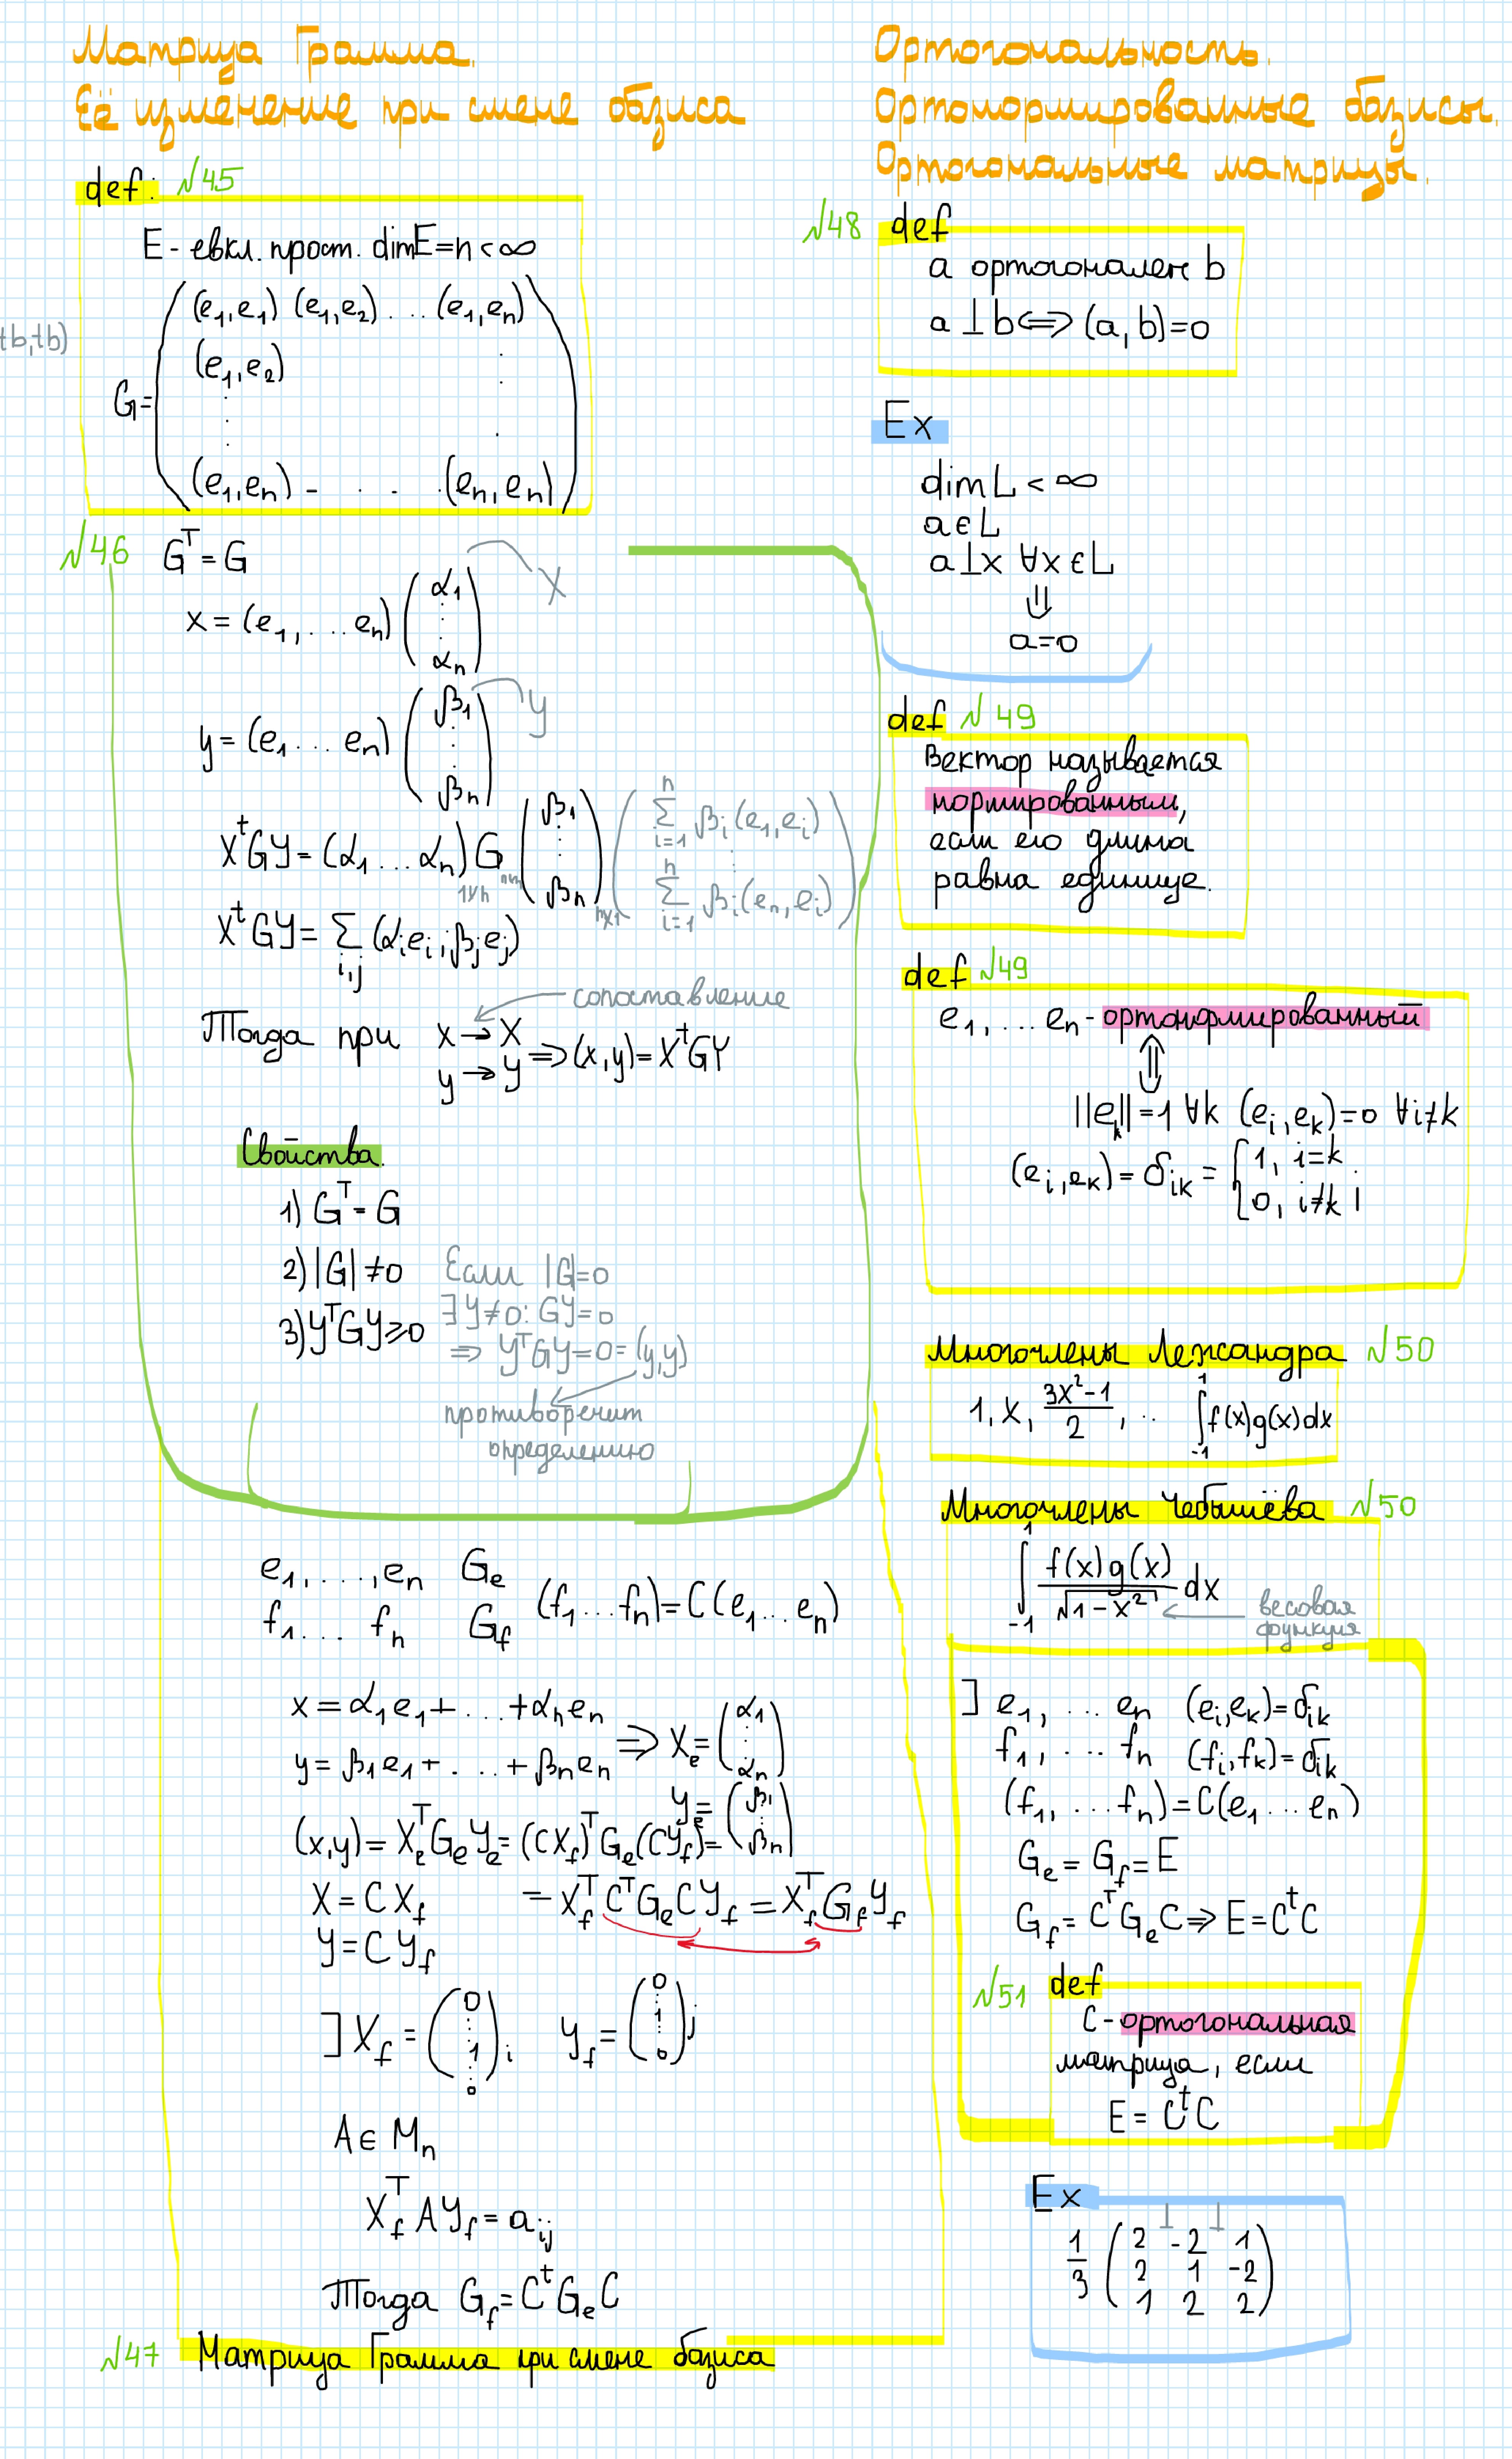 Матрица Грамма.
Её изменение при смене базиса
def: №45
E - евкл. прост. dimE=n<∞
tb,tb)
G= ( (e₁,e₁) (e₁,e₂) . . . (e₁,en)
(e₁,e₂) .
. .
(e₁,en) - . . . (en,en) )
№46 Gᵀ=G
x = (e₁, ... en) (α₁ ⋮ αn) X
y = (e₁ ... en) (β₁ ⋮ βn) Y
XᵗGY = (α₁ ... αn) G (β₁ ⋮ βn) ( Σ βi(e₁,ei) ⋮ Σ βi(en,ei) )
1×n n×n n×1
XᵗGY = Σ i,j (αi ei, βj ej)
сопоставление
Тогда при x → X
y → Y ⇒ (x,y) = XᵗGY
Свойства.
1) Gᵀ = G
2) |G| ≠ 0 Если |G|=0
∃ Y≠0: GY=0
3) YᵀGY ⩾ 0 ⇒ YᵀGY=0=(y,y)
противоречит
определению
e₁, ..., en Ge
f₁ ... fn Gf (f₁ ... fn) = C(e₁ ... en)
x = α₁e₁ + ... + αnen
y = β₁e₁ + ... + βnen ⇒ Xe = (α₁ ⋮ αn)
Ye = (β₁ ⋮ βn)
(x,y) = XeᵀGeYe = (CXf)ᵀGe(CYf) =
X = CXf = XfᵀCᵀGeCYf = XfᵀGfYf
Y = CYf
] Xf = (0 ⋮ 1 ⋮ 0) i Yf = (0 ⋮ 1 ⋮ 0) j
A ∈ Mn
XfᵀAYf = aij
Тогда Gf = CᵗGeC
№47 Матрица Грамма при смене базиса
Ортогональность.
Ортонормированные базисы.
Ортогональные матрицы.
№48 def
a ортогонален b
a ⊥ b ⟺ (a,b)=0
Ex
dim L < ∞
a ∈ L
a ⊥ x ∀x ∈ L
⇓
a=0
def №49
Вектор называется
нормированным,
если его длина
равна единице.
def №49
e₁, ... en - ортонормированный
⇕
||ek||=1 ∀k (ei,ek)=0 ∀i≠k
(ei,ek) = δik = { 1, i=k
0, i≠k
Многочлены Лежандра №50
1, x, (3x²-1)/2, .. ∫₋₁¹ f(x)g(x)dx
Многочлены Чебышёва №50
∫₋₁¹ f(x)g(x)/√(1-x²) dx весовая
функция
] e₁, ... en (ei,ek)=δik
f₁, ... fn (fi,fk)=δik
(f₁, ... fn) = C(e₁ ... en)
Ge = Gf = E
Gf = CᵀGeC ⇒ E = CᵗC
№51 def
C - ортогональная
матрица, если
E = CᵗC
Ex
⊥ ⊥
1/3 ( 2 -2 1
2 1 -2
1 2 2 )